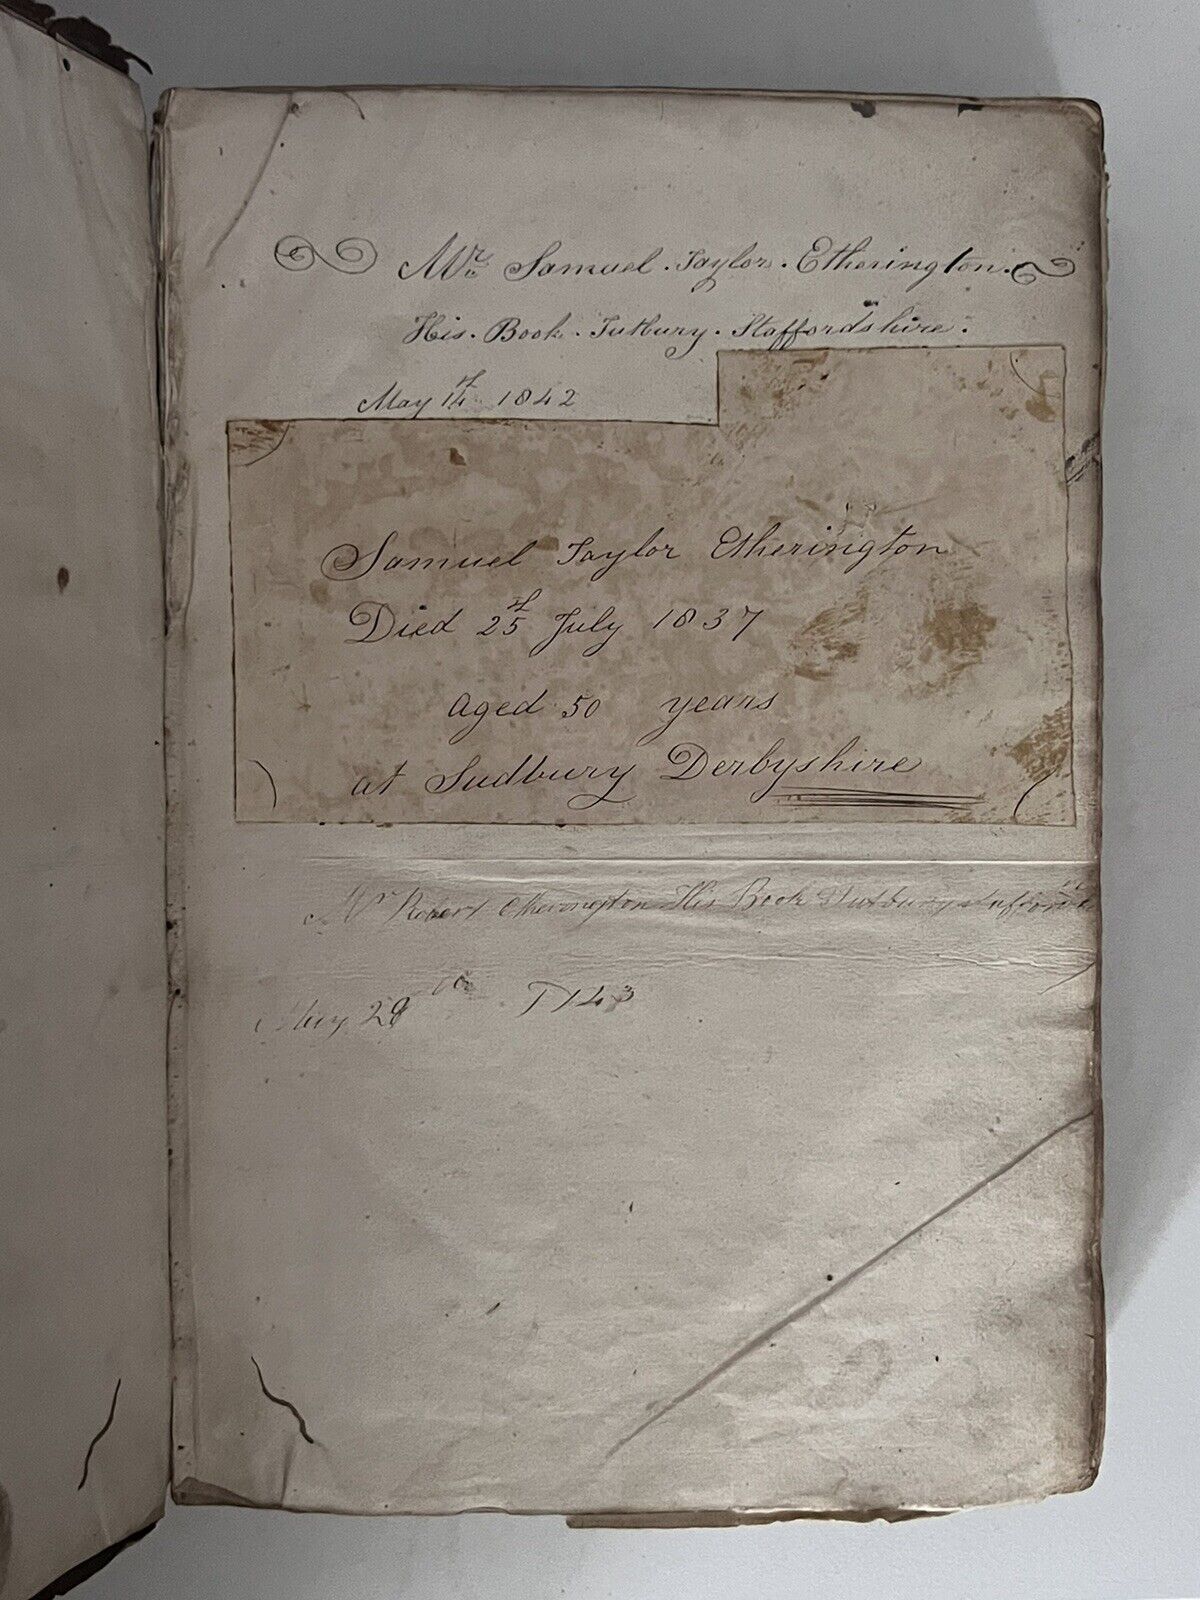 Mr. Samuel. Taylor. Etherington.
His. Book. Tutbury. Staffordshire.
May 14th 1842
Samuel Taylor Etherington
Died 25th July 1837
aged 50 years
at Sudbury Derbyshire
Mr Robert Etherington His Book Tutbury
May 28